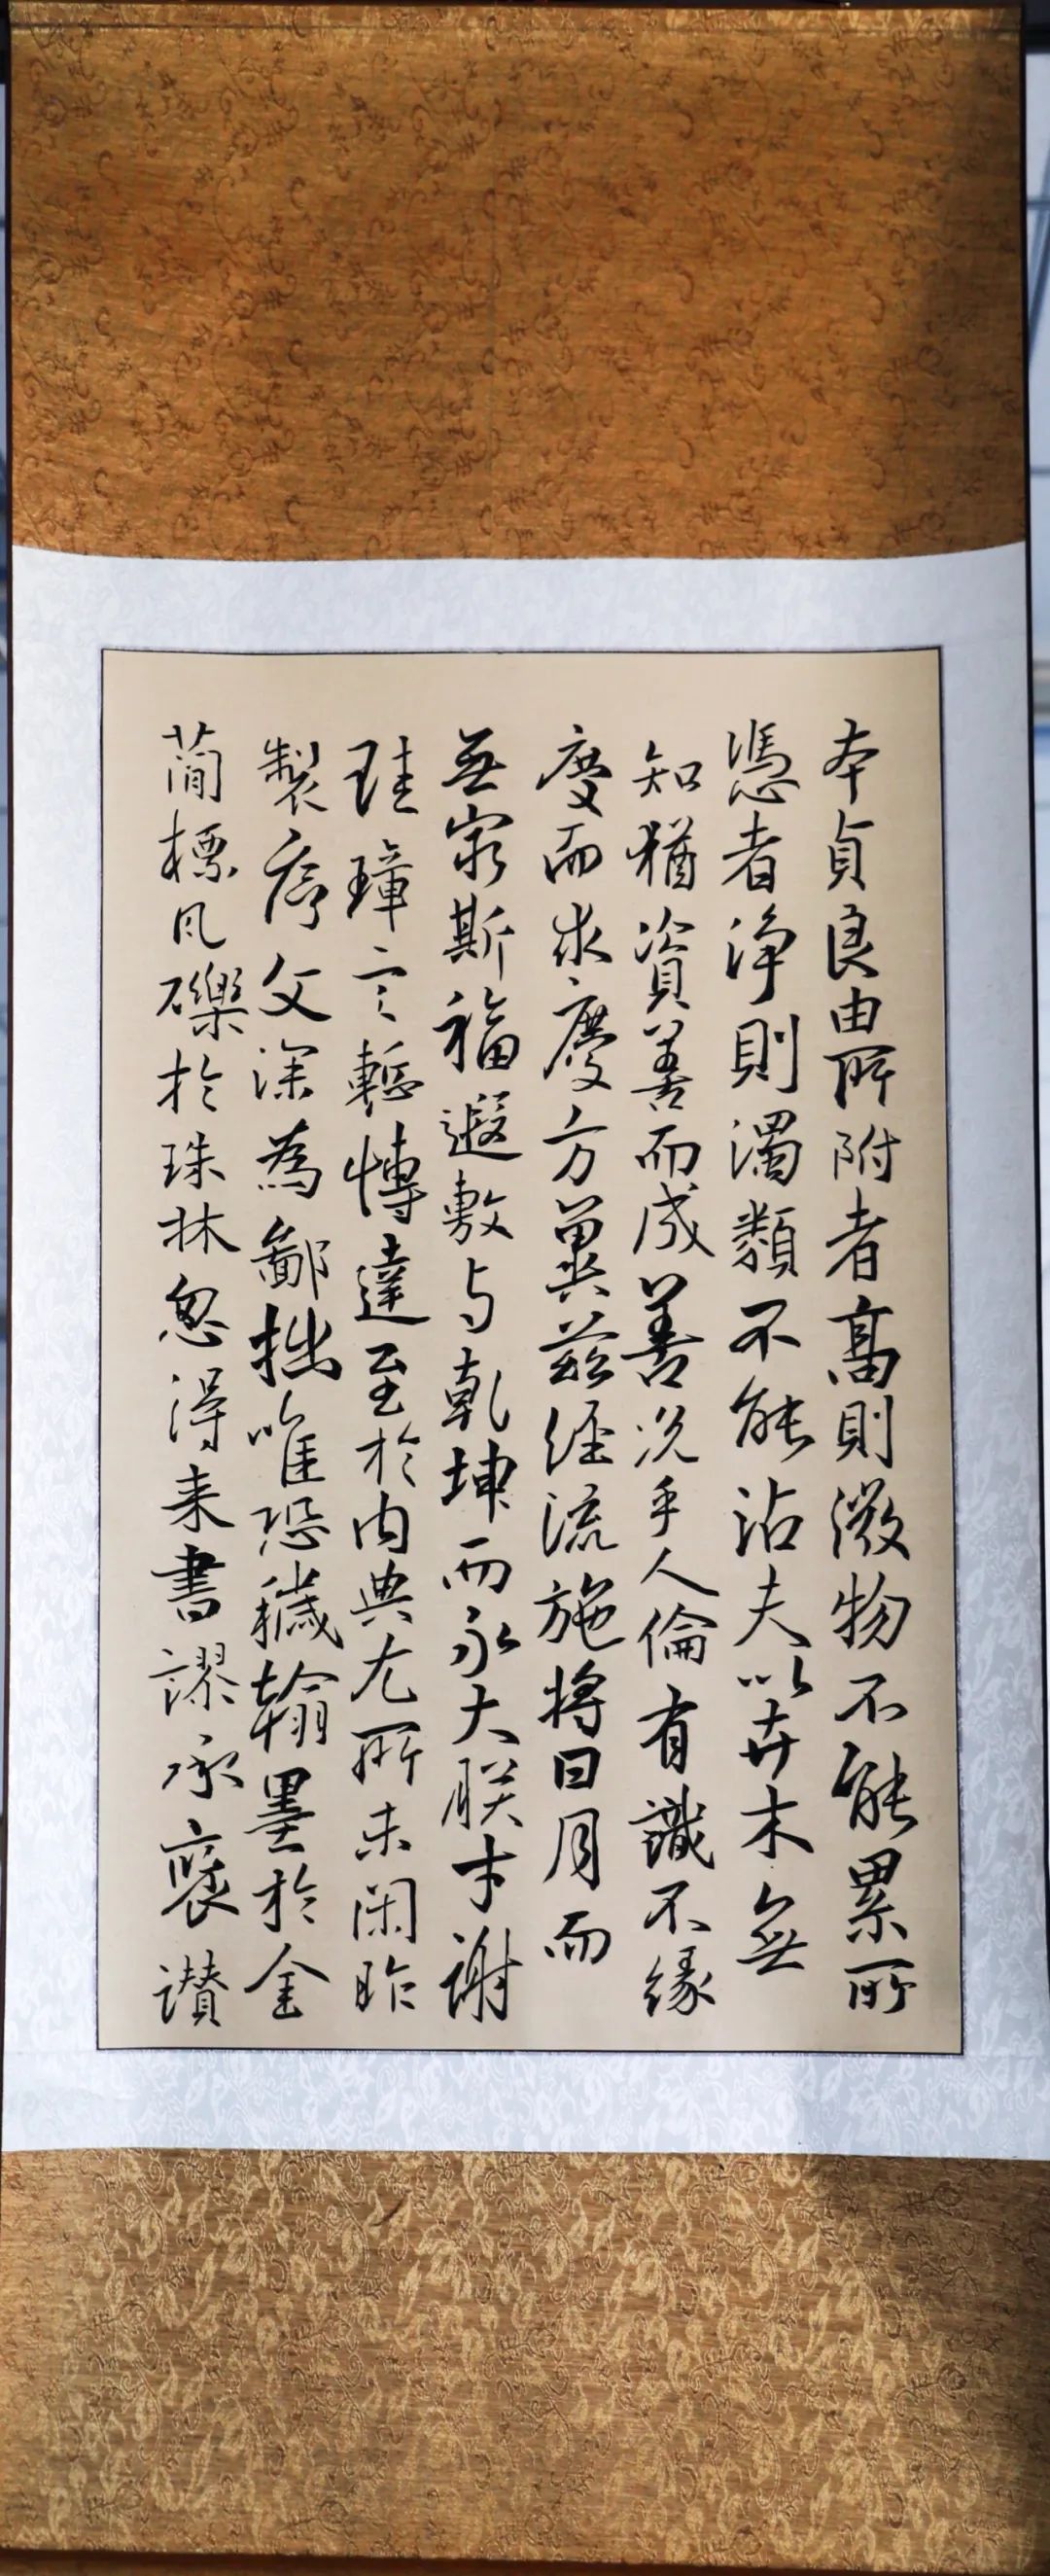 本貞良由所附者高則微物不能累所
憑者浄則濁類不能沾夫以卉木無
知猶資善而成善況乎人倫有識不緣
慶而求慶方冀茲经流施將日月而
無窮斯福遐敷与乾坤而永大朕才謝
珪璋言慙博達至於内典尤所未閑昨
製序文深為鄙拙唯恐穢翰墨於金
簡標瓦礫於珠林忽得来書謬承褒讃